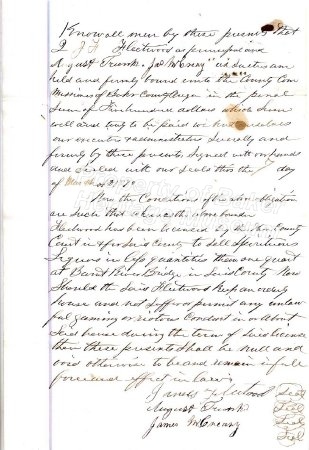 Know all men by these presents that
I J F Fleetwood as principal and
August Trunk & Jas McCreary as sureties are
held and firmly bound unto the County Com
missioners of Baker County Oregon in the penal
Sum of five hundred dollars which sum
well and truly to be paid we bind ourselves
our executors & administrators Severally and
firmly by these presents Signed with our hands
and Sealed with our Seals this the day
of March
Now the Conditions of the above obligation
are Such that whereas the above bounden
Fleetwood has been licensed by the County
Court in & for Said County to Sell Spirituous
Liquors in less quantities than one quart
at Burnt River Bridge in Said County Now
Should the Said Fleetwood Keep an orderly
house and not Suffer or permit any unlaw
ful gaming or riotous Conduct in or about
Said house during the term of Said license
then these presents Shall be null and
void otherwise to be and remain in full
force and effect in law
Fleetwood Seal
August Trunk Seal
James McCreary Seal
Seal